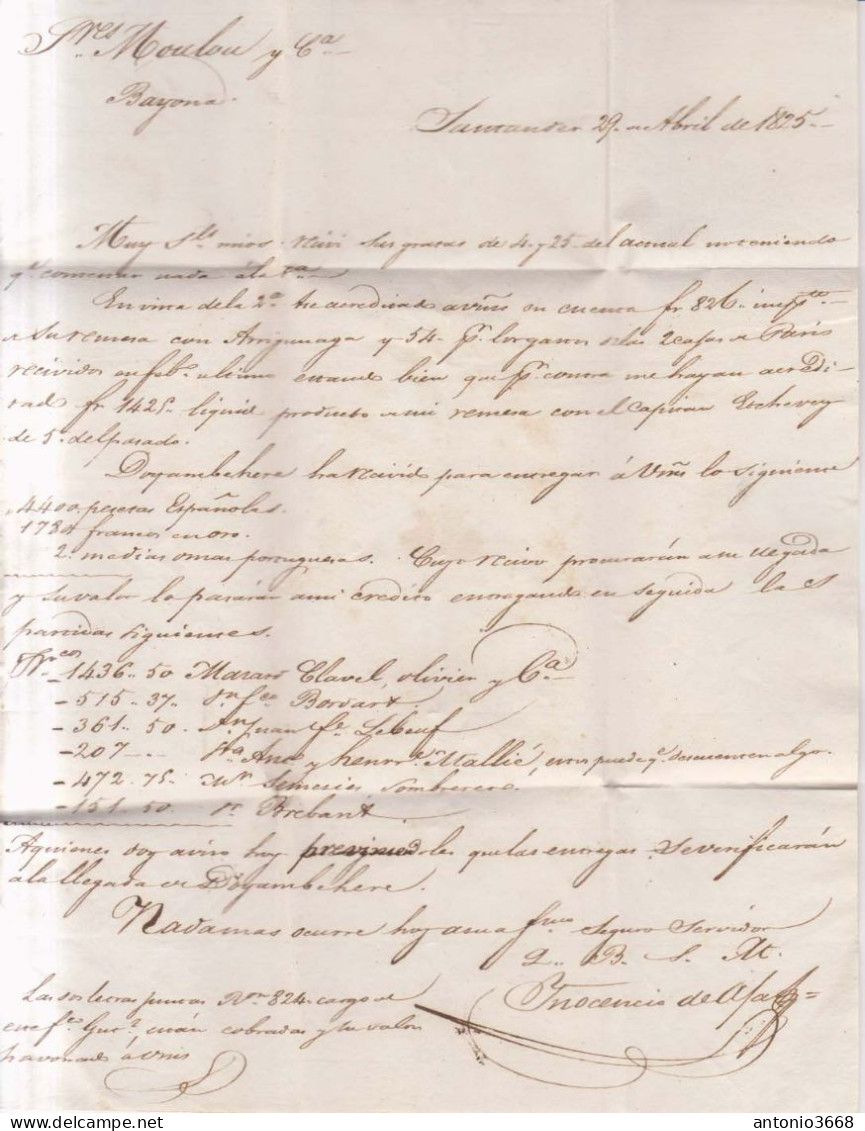 Sres Moulou y Ca
Bayona.
Santander 29 de Abril de 1825.
Muy Srs mios: recivi sus gratas de 4. y 25. del actual no teniendo
qe contextar nada á la 1a
En vira de la 2a he acreditado a vms en cuenta fr. 826.
a su remesa con Arrigunaga y 54. pr. los gastos de las 2 cajas de Paris
recividos en febo ultimo estando bien que pr. contra me hayan acredi-
tado fr. 1425. liquido producto a mi remesa con el Capitan Etchevery
de 5. del pasado.
Doyambehere ha recivido para entregar á Vms lo siguiente
4400. pesetas Españolas.
1780 francos en oro.
2. medias onzas portuguesas. Cuyo recivo procurarán a su llegada
y su valor lo pasarán a mi credito entregando en seguida las
partidas siguientes.
Frcos 1436.. 50 Clavel, Olivier y Ca
- 515.. 37..
- 361.. 50. Juan Lebeuf
- 207 - .. y henrre Mallié, puede qe descuenten algo.
- 472. 75. Sombrerero.
- 151. 50. Sr Brebant
A quienes doy aviso hoy previniendoles que las entregas se verificarán
a la llegada de Doyambehere.
Nada mas ocurre hoy a su afmo seguro servidor
Q.. B.. S.. M.
Ynocencio de
Las dos letras juntas Nos 824. cargo de
cobradas y su valor
havonado á vms
antonio3668